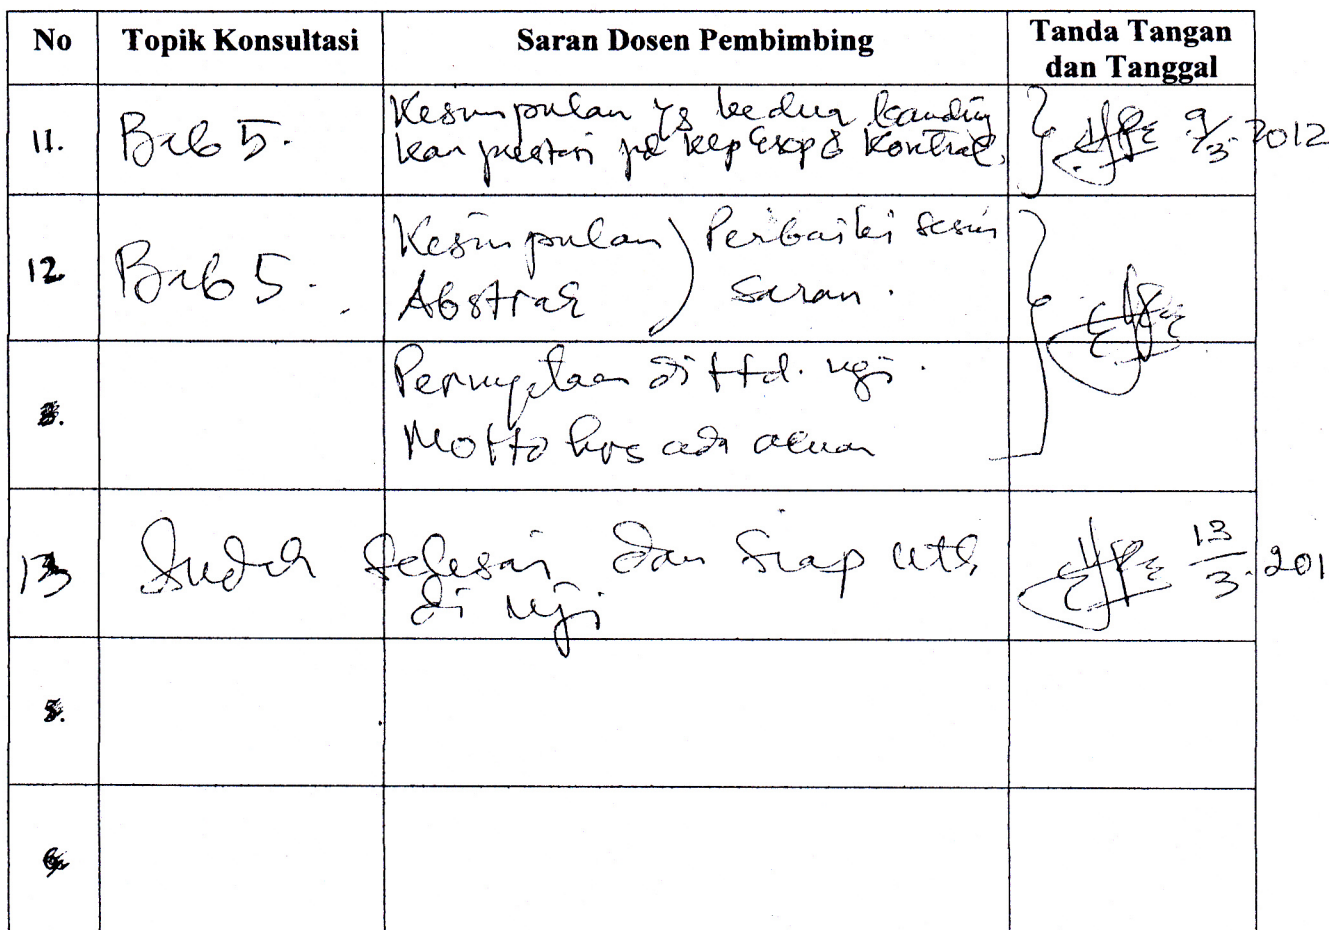 No Topik Konsultasi Saran Dosen Pembimbing Tanda Tangan dan Tanggal
11. Bab 5. Kesimpulan yg kedua banding
kan prestasi pd klp Eksp & Kontrol. 9/3-2012
12 Bab 5. Kesimpulan ) Perbaiki sesuai
Abstrak saran.
Pernyataan di ttd. ugi.
Motto hrs ada
13 Sudah selesai dan Siap utk 13/3.201
di uji
5.